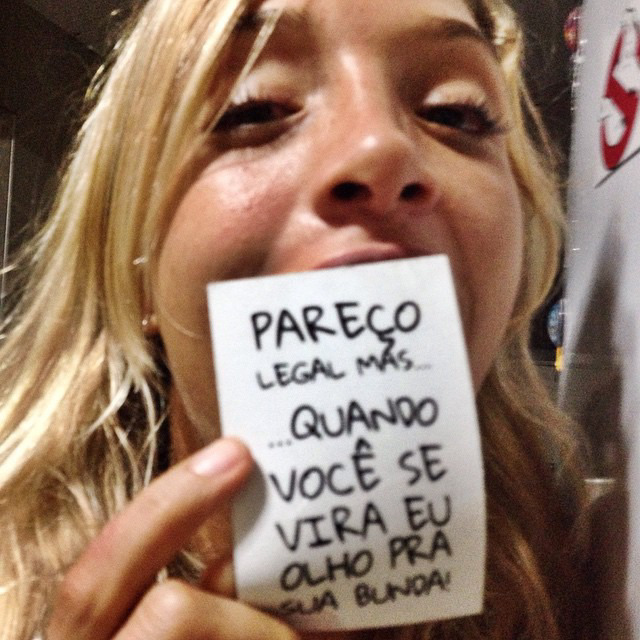 PAREÇO
LEGAL MAS...
...QUANDO
VOCÊ SE
VIRA EU
OLHO PRA
SUA BUNDA!
S